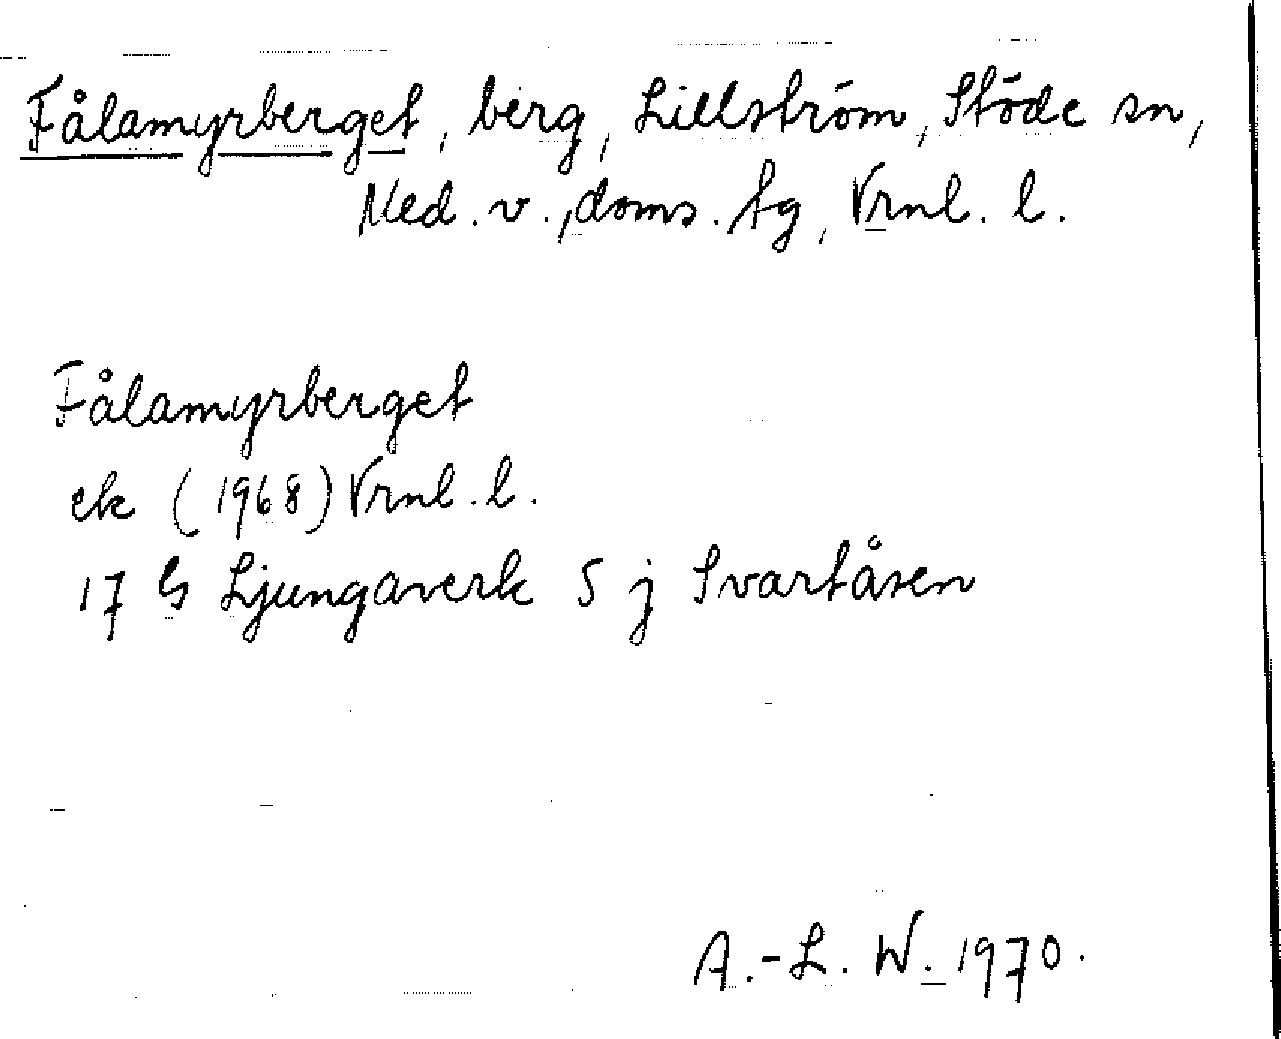 Fålamyrberget, berg, Lillström, Stöde sn,
Med. v., doms. tg, Vrnl. l.
Fålamyrberget
ek (1968) Vrnl. l.
17 G Ljungaverk 5 j Svartåsen
A.-L. W. 1970.